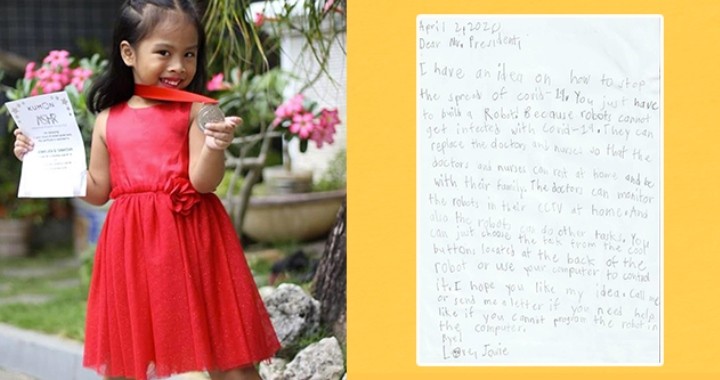 KUMON
ASHR
April 2, 2020
Dear Mr. President,
I have an idea on how to stop
the spread of covid-19. You just have
to build a Robot! Because robots cannot
get infected with Covid-19. They can
replace the doctors and nurses so that the
doctors and nurses can rest at home and be
with their family. The doctors can monitor
the robots in their CCTV at home. And
also the robots can do other tasks. You
can just choose the task from the cool
buttons located at the back of the
robot or use your computer to control
it. I hope you like my idea. Call me
or send me a letter if you need help
like if you cannot program the robot in
the computer.
Bye!
Love, Jowie